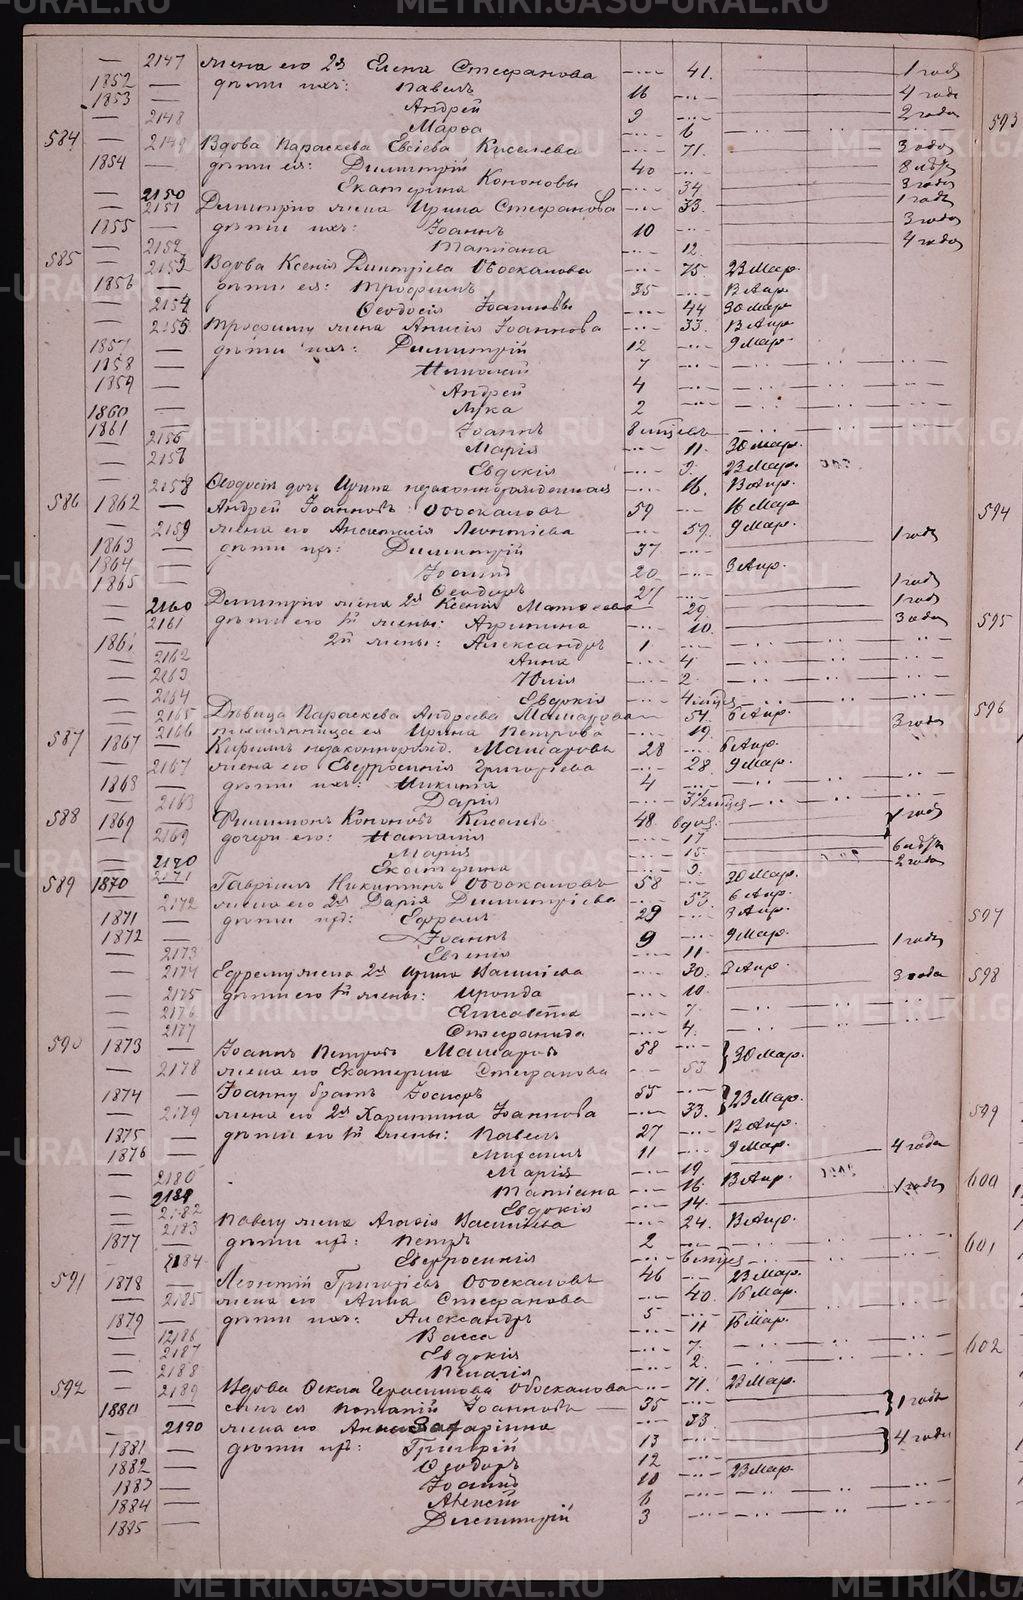 — 2147 жена его 2я Елена Стефанова -..- 41. 1 годъ
1852 — дѣти ихъ: Павелъ 16 4 года
1853 — Андрей 9 2 года
— 2148 Марѳа 6
584 — 2149 Вдова Параскева Евсіева Киселева 71. 3 года
1854 — дѣти ея: Димитрій 40
— 2150 Екатерина Кононовы 34. 3 года
— 2151 Димитрію жена Ирина Стефанова 33. 1 годъ
1855 — дѣти ихъ: Іоаннъ 10 3 года
— 2152 Татіана 12. 4 года
585 — 2153 Вдова Ксенія Дмитріева Обоскалова 75. 23 Мар.
1856 — дѣти ея: Трофимъ 35 13 Апр.
— 2154 Ѳеодосія Іоанновы 44 30 Мар.
— 2155 Трофиму жена Анисія Іоаннова 33. 13 Апр.
1857 — дѣти ихъ: Димитрій 12 9 Мар.
1858 — Николай 7
1859 — Андрей 4
1860 — Лука 2
1861 — Іоаннъ 8 мѣсцевъ
— 2156 Марія 11. 30 Мар.
— 2157 Евдокія 9. 23 Мар.
— 2158 Ѳеодосіи дочь Ирина незаконнорожденная 16. 13 Апр.
586 1862 — Андрей Іоанновъ Обоскаловъ 59 16 Мар.
— 2159 жена его Анастасія Леонтіева 59. 9 Мар.
1863 — дѣти их: Димитрій 37 1 годъ
1864 — Іоаннъ 20 3 Апр.
1865 — Ѳеодоръ 21 1 годъ
— 2160 Димитрію жена 2я Ксенія Матѳеева 29. 1 годъ
— 2161 дѣти его 1й жены: Агрипина 10. 3 года
1866 2й жены: Александръ 1
— 2162 Анна 4
— 2163 Юлія 2
— 2164 Евдокія 4 мѣця
— 2165 Дѣвица Параскева Андреева Машарова 54. 6 Апр.
— 2166 племянница ея Ирина Петрова 19. 3 года
587 1867 — Кириллъ незаконнорожд. Машаровъ 28 6 Апр.
— 2167 жена его Евфросинія Григоріева 28. 9 Мар.
1868 — дѣти ихъ: Никита 4
— 2168 Дарія 3½ мѣця
588 1869 — Филимонъ Кононовъ Киселевъ 48 вдов. 1 годъ
— 2169 дочери его: Наталія 17
— 2170 Марія 15.
— 2171 Екатерина 9. 2 года
589 1870 Гавріилъ Никитинъ Обоскаловъ 58 30 Мар.
— 2172 жена его 2я Дарія Димитріева 53. 6 Апр.
1871 — дѣти их: Ефремъ 29 3 Апр.
1872 — Іоаннъ 9 9 Мар.
— 2173 Евгенія 11. 1 годъ
— 2174 Ефрему жена 2я Ирина Василіева 30. 3 Апр.
— 2175 дѣти его 1й жены: Ираида 10. 3 года
— 2176 Елисавета 7.
— 2177 Стефанида 4.
590 1873 — Іоаннъ Петровъ Машаровъ 58 } 30 Мар.
— 2178 жена его Екатерина Стефанова 53.
1874 — Іоанну братъ Іосифъ 55 } 23 Мар.
— 2179 жена его 2я Харитина Іоаннова 33.
1875 — дѣти его 1й жены: Павелъ 27 13 Апр.
1876 — Михаилъ 11 9 Мар. 4 года
— 2180 Марія 19.
— 2181 Татіана 16. 13 Апр.
— 2182 Евдокія 14. 1 годъ
— 2183 Павлу жена Агафія Василіева 24. 13 Апр.
1877 — дѣти их: Петръ 2
— 2184 Евфросинія 6 мѣця
591 1878 — Леонтій Григоріевъ Обоскаловъ 46 23 Мар.
— 2185 жена его Анна Стефанова 40. 16 Мар.
1879 — дѣти ихъ: Александръ 5
— 2186 Васса 11 16 Мар.
— 2187 Евдокія 7.
— 2188 Пелагія 2.
592 — 2189 Вдова Ѳекла Герасимова Обоскалова 71. 23 Мар.
1880 — сынъ ея Потапій Іоанновъ 35 } 1 годъ
— 2190 жена его Анна Захаріина 33.
1881 — дѣти их: Григорій 13 } 4 года
1882 — Ѳеодоръ 12
1883 — Іоаннъ 10 23 Мар.
1884 — Алексій 6
1885 Димитрій 3
593
594
595
596
597
598
599
600
601
602
METRIKI.GASO-URAL.RU